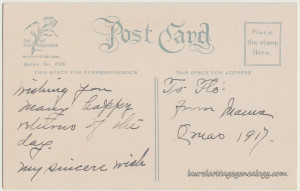 Post Card
Place
the stamp
Here
THIS SPACE FOR CORRESPONDENCE
THIS SPACE FOR ADDRESS
Wishing you
Many happy
returns of the
day.
My sincere wish
To Flo.
from Mama
Xmas 1917.
laurelcottagegenealogy.com